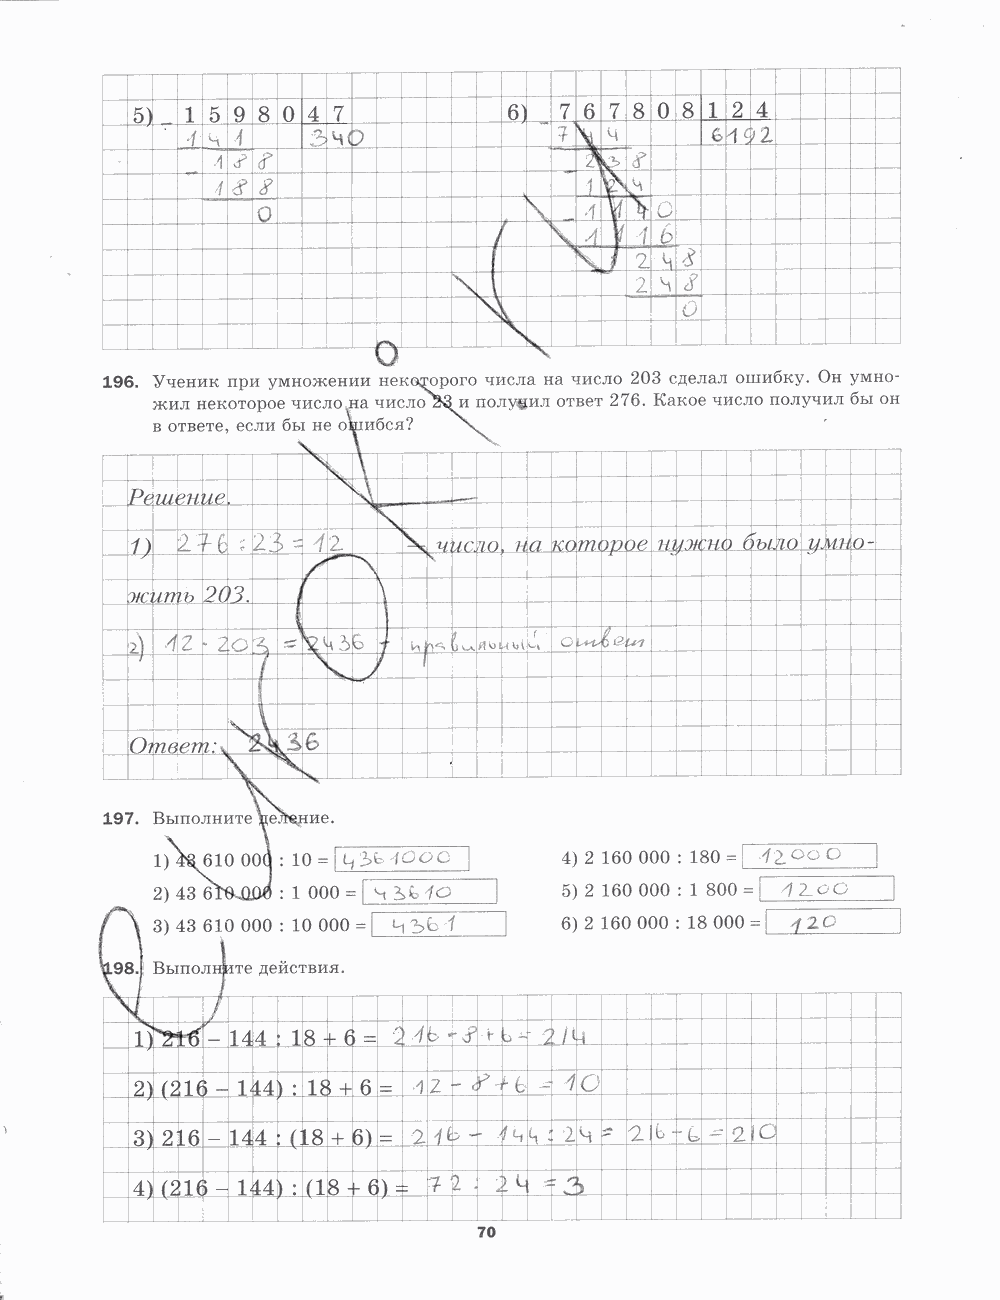 5) _ 1 5 9 8 0 4 7
1 4 1 340
_ 1 8 8
1 8 8
0
6) _ 7 6 7 8 0 8 1 2 4
7 4 4 6192
_ 2 3 8
1 2 4
_ 1 1 4 0
1 1 1 6
2 4 8
2 4 8
0
196. Ученик при умножении некоторого числа на число 203 сделал ошибку. Он умно-
жил некоторое число на число 23 и получил ответ 276. Какое число получил бы он
в ответе, если бы не ошибся?
Решение.
1) 276 : 23 = 12 — число, на которое нужно было умно-
жить 203.
2) 12 · 203 = 2436 - правильный ответ
Ответ: 2436
197. Выполните деление.
1) 43 610 000 : 10 = 4361000
2) 43 610 000 : 1 000 = 43610
3) 43 610 000 : 10 000 = 4361
4) 2 160 000 : 180 = 12000
5) 2 160 000 : 1 800 = 1200
6) 2 160 000 : 18 000 = 120
198. Выполните действия.
1) 216 – 144 : 18 + 6 = 216 - 8 + 6 = 214
2) (216 – 144) : 18 + 6 = 12 - 8 + 6 = 10
3) 216 – 144 : (18 + 6) = 216 - 144 : 24 = 216 - 6 = 210
4) (216 – 144) : (18 + 6) = 72 : 24 = 3
70